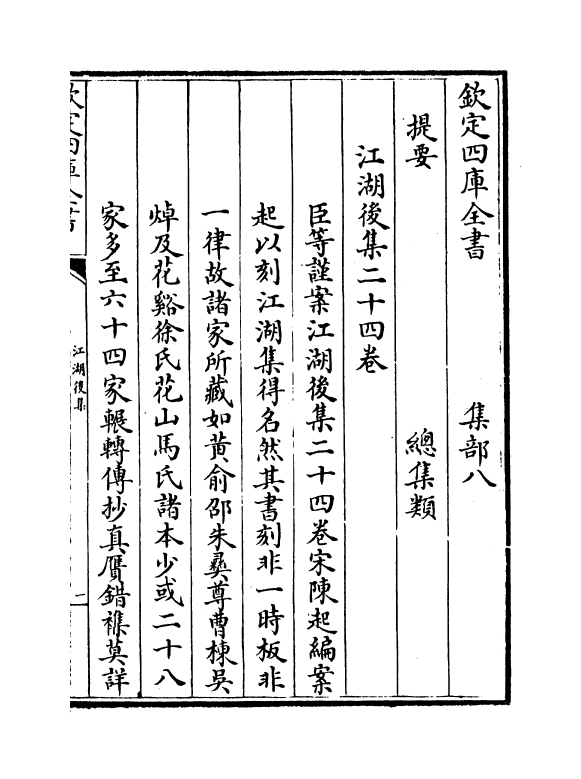 欽定四庫全書　集部八
提要　總集類
江湖後集二十四卷
臣等謹案江湖後集二十四卷宋陳起編案
起以刻江湖集得名然其書刻非一時板非
一律故諸家所藏如黃俞邵朱彝尊曹棟吳
焯及花谿徐氏花山馬氏諸本少或二十八
家多至六十四家輾轉傳抄真贋錯襍莫詳
欽定四庫全書
江湖後集
一